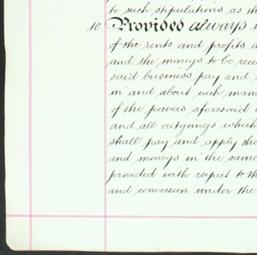 to such stipulations as th
10 Provided always
of the rents and profits a
and the moneys to be rece
said business pay and
in and about such mana
of the powers aforesaid
and all outgoings which
shall pay and apply the
and moneys in the same
provided with respect to th
and conversion under the